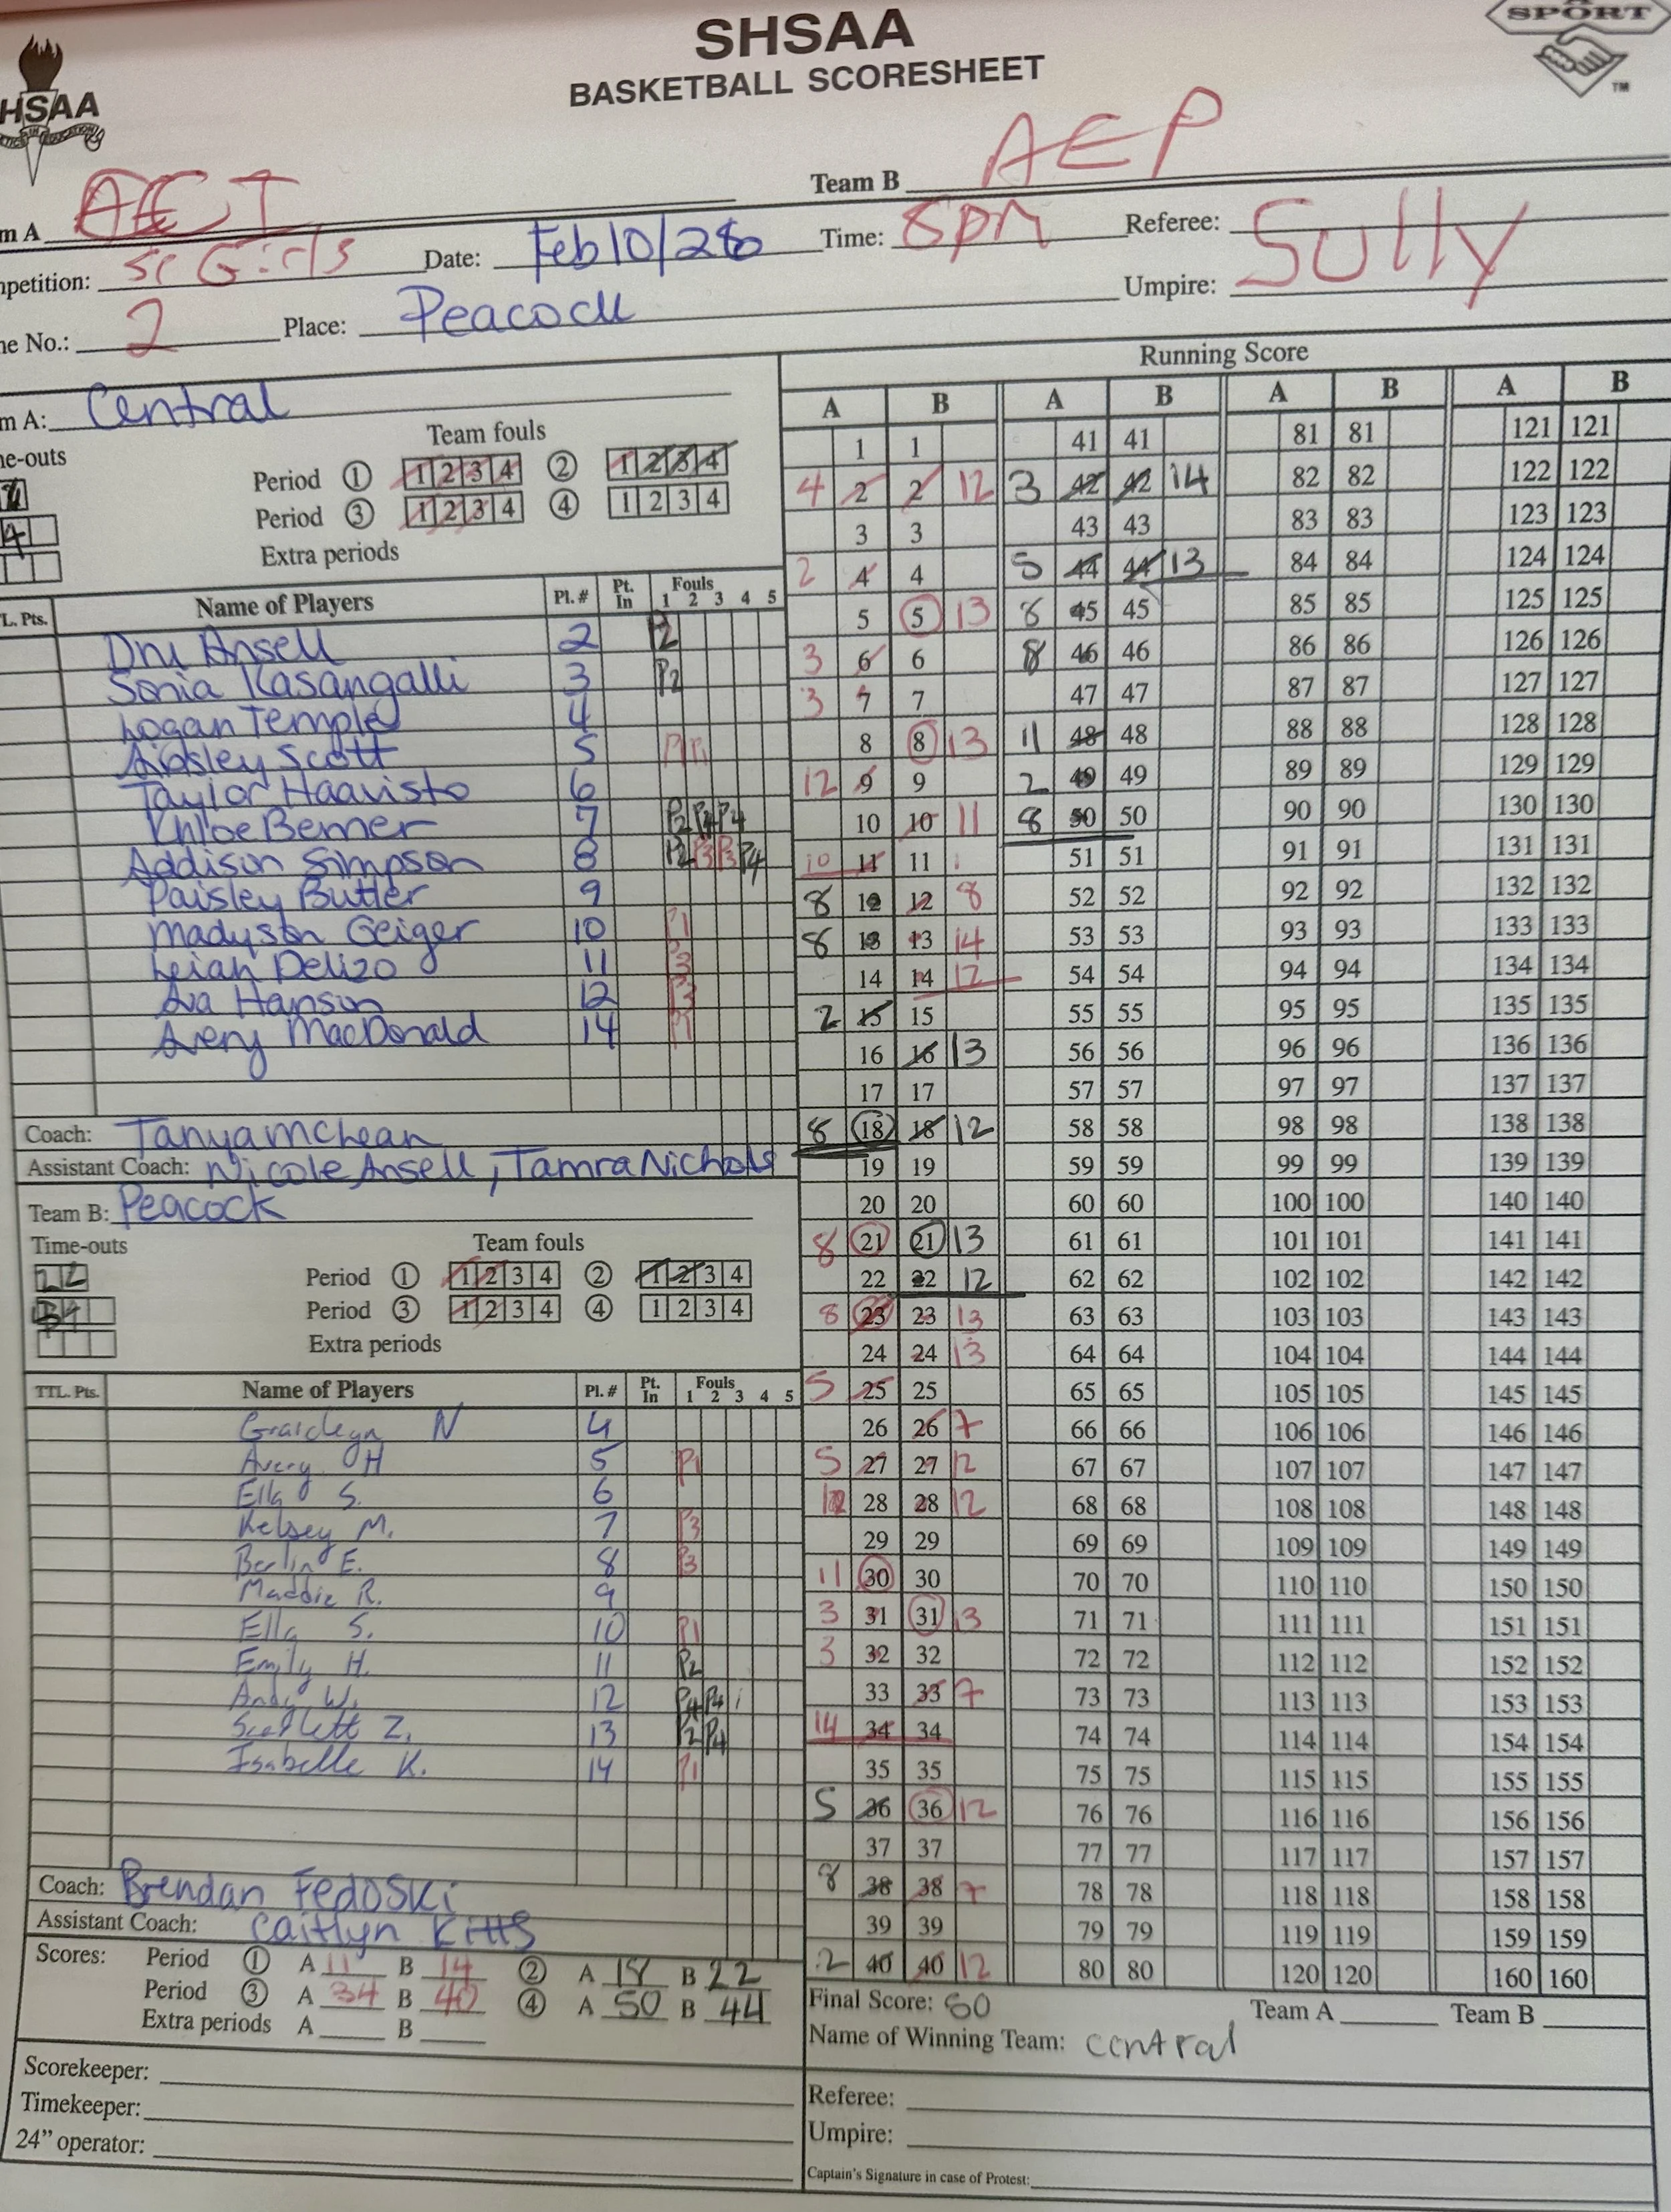 SHSAA
BASKETBALL SCORESHEET
SPORT
TM
HSAA
m A ACI Team B AEP
mpetition: Sr Girls Date: Feb 10/26 Time: 8pm Referee: Sully
me No.: 2 Place: Peacock Umpire:
m A: Central
me-outs Team fouls
Period 1 1 2 3 4 2 1 2 3 4
Period 3 1 2 3 4 4 1 2 3 4
Extra periods
L. Pts. Name of Players Pl. # Pt. In Fouls 1 2 3 4 5
Dru Ansell 2 P2
Sonia Kasangalli 3 P2
Logan Temple 4
Ainsley Scott 5 P1 P1
Taylor Haavisto 6
Khloe Bemer 7 P2 P4 P4
Addison Simpson 8 P2 P3 P3 P4
Paisley Butler 9
Madyson Geiger 10 P1
Leiah Delizo 11 P3
Ava Hanson 12 P3
Avery MacDonald 14 P1
Coach: Tanya McLean
Assistant Coach: Nicole Ansell, Tamra Nichols
Team B: Peacock
Time-outs Team fouls
Period 1 1 2 3 4 2 1 2 3 4
Period 3 1 2 3 4 4 1 2 3 4
Extra periods
TTL. Pts. Name of Players Pl. # Pt. In Fouls 1 2 3 4 5
N 4
Avery H 5 P1
Ella S. 6
Kelsey M. 7 P3
Berlin E. 8 P3
Maddie R. 9
Ella S. 10 P1
Emily H. 11 P2
Andy W. 12 P4 P4
Scarlett Z. 13 P2 P4
Isabelle K. 14 P1
Coach: Brendan Fedoski
Assistant Coach: Caitlyn Kitts
Scores: Period 1 A 11 B 14 2 A 18 B 22
Period 3 A 34 B 40 4 A 50 B 44
Extra periods A B
Scorekeeper:
Timekeeper:
24” operator:
Running Score
A B A B A B A B
1 1 41 41 81 81 121 121
4 2 2 12 3 42 42 14 82 82 122 122
3 3 43 43 83 83 123 123
2 4 4 5 44 44 13 84 84 124 124
5 5 13 8 45 45 85 85 125 125
3 6 6 8 46 46 86 86 126 126
3 7 7 47 47 87 87 127 127
8 8 13 11 48 48 88 88 128 128
12 9 9 2 49 49 89 89 129 129
10 10 11 8 50 50 90 90 130 130
10 11 11 51 51 91 91 131 131
8 12 12 8 52 52 92 92 132 132
8 13 13 14 53 53 93 93 133 133
14 14 12 54 54 94 94 134 134
2 15 15 55 55 95 95 135 135
16 16 13 56 56 96 96 136 136
17 17 57 57 97 97 137 137
8 18 18 12 58 58 98 98 138 138
19 19 59 59 99 99 139 139
20 20 60 60 100 100 140 140
8 21 21 13 61 61 101 101 141 141
22 22 12 62 62 102 102 142 142
8 23 23 13 63 63 103 103 143 143
24 24 13 64 64 104 104 144 144
5 25 25 65 65 105 105 145 145
26 26 7 66 66 106 106 146 146
5 27 27 12 67 67 107 107 147 147
12 28 28 12 68 68 108 108 148 148
29 29 69 69 109 109 149 149
11 30 30 70 70 110 110 150 150
3 31 31 13 71 71 111 111 151 151
3 32 32 72 72 112 112 152 152
33 33 7 73 73 113 113 153 153
14 34 34 74 74 114 114 154 154
35 35 75 75 115 115 155 155
5 36 36 12 76 76 116 116 156 156
37 37 77 77 117 117 157 157
8 38 38 7 78 78 118 118 158 158
39 39 79 79 119 119 159 159
2 40 40 12 80 80 120 120 160 160
Final Score: 50 Team A Team B
Name of Winning Team: central
Referee:
Umpire:
Captain's Signature in case of Protest: